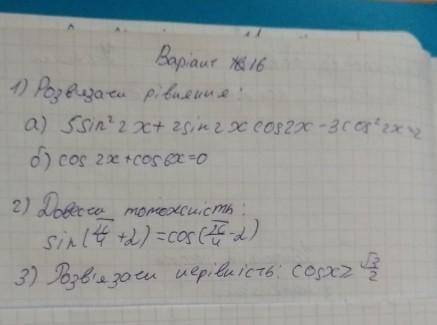 Варіант №16
1) Розв'язати рівняння:
а) 5sin²2x+2sin2x cos2x-3cos²2x=2
б) cos 2x+cos6x=0
2) Довести тотожність:
sin(π/4+2)=cos(π/4-2)
3) Розв'язати нерівність: cosx≥√3/2